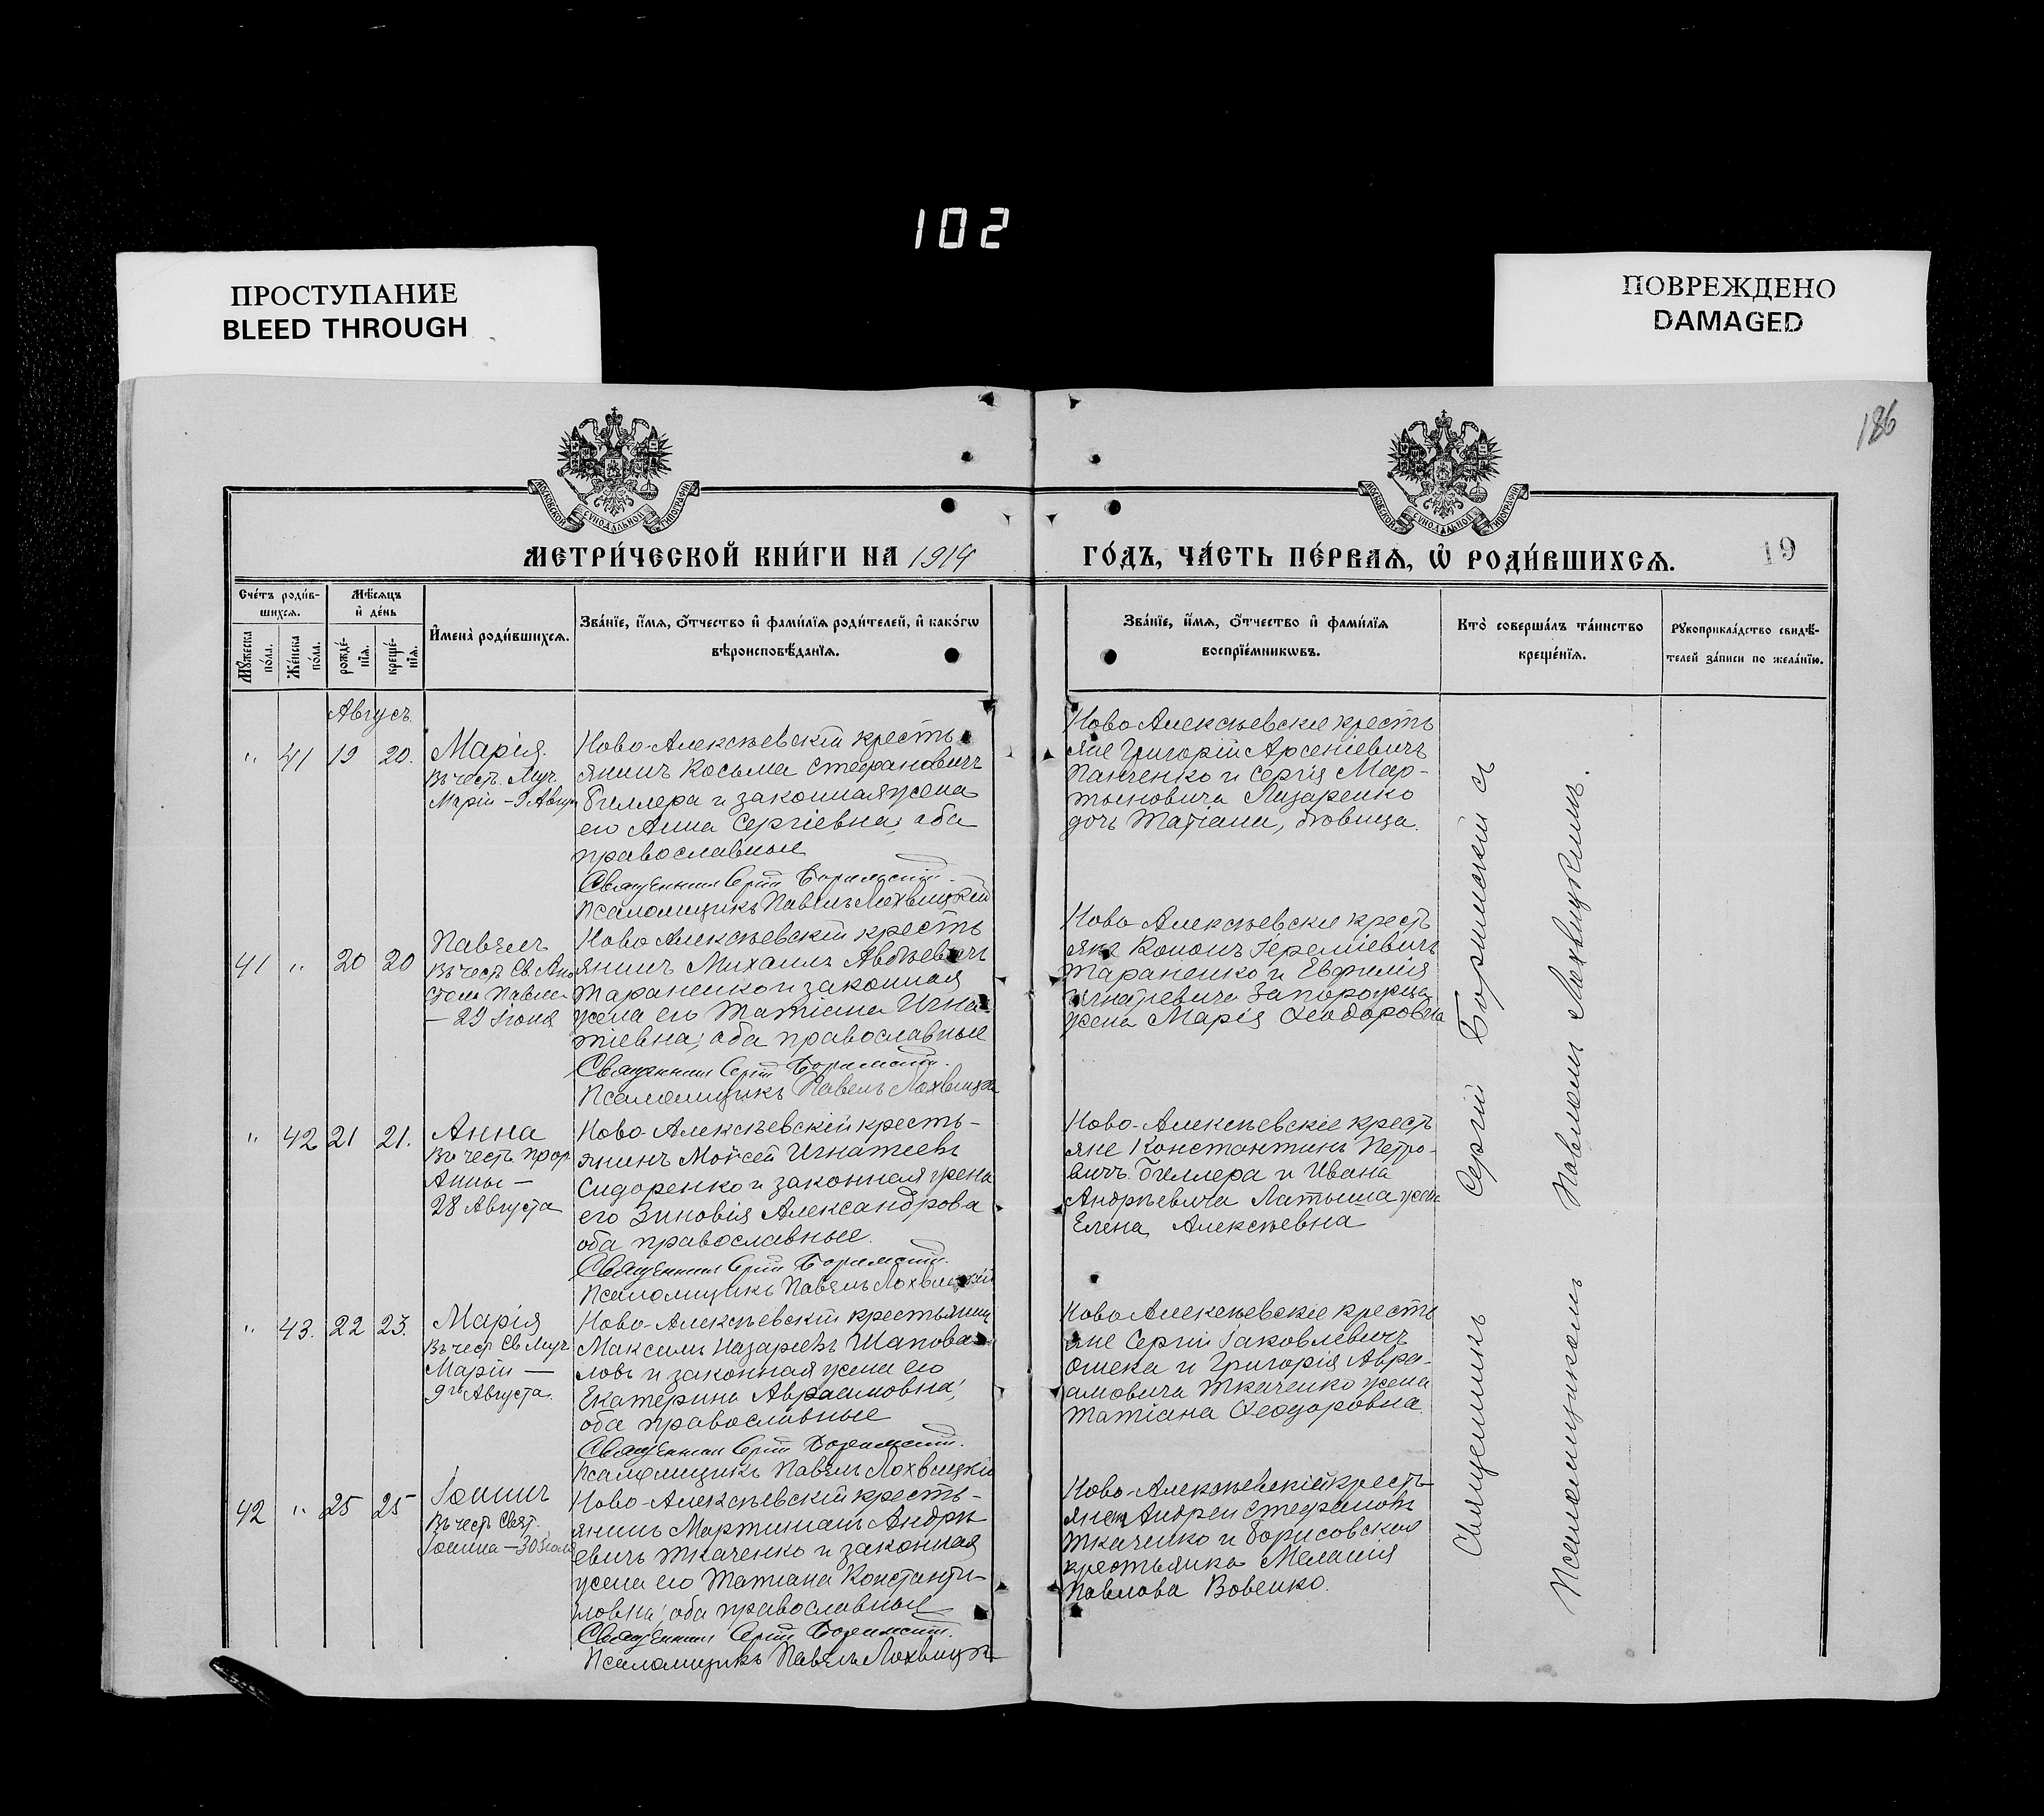 102
ПРОСТУПАНИЕ
BLEED THROUGH
ПОВРЕЖДЕНО
DAMAGED
186
МОСКОВСКОЙ СѴНОДАЛЬНОЙ ТИПОГРАФІИ
МОСКОВСКОЙ СѴНОДАЛЬНОЙ ТИПОГРАФІИ
МЕТРИ́ЧЕСКОЙ КНИ́ГИ НА 1914
ГО́ДЪ, ЧА́СТЬ ПЕ́РВАѦ, Ѡ҆ РОДИ́ВШИХСѦ.
19
Сче́тъ роди́в-
шихсѧ.
Мѣ́сѧцъ
и҆ де́нь
Мꙋ́жеска
по́ла.
Же́нска
по́ла.
рожде́-
нїѧ.
креще́-
нїѧ.
И҆мена̀ роди́вшихсѧ.
Зва́нїе, и҆́мѧ, о҆́тчество и҆ фами́лїѧ роди́телей, и҆ како́гѡ
вѣроисповѣ́данїѧ.
Зва́нїе, и҆́мѧ, о҆́тчество и҆ фами́лїѧ
воспрїе́мникѡвъ.
Кто̀ соверша́лъ та́инство
креще́нїѧ.
Рꙋкоприкла́дство свидѣ́-
телей за́писи по жела́нїю.
Августъ
" 41 19 20.
Марія.
Въ честь Муч.
Маріи – 9 Август
Ново-Алексѣевскій кресть
янинъ Косьма Стефановичъ
Биллера и законная жена
его Анна Сергіевна, оба
православные
Священникъ Сергій Боримскій.
Псаломщикъ Павелъ Лохвицкій
Ново Алексѣевскіе кресть
яне Григорій Арсеніевичъ
Панченко и Сергія Мар-
тыновича Лазаренко
дочь Татіана, дѣвица.
41 " 20 20
Павелъ
Въ честь Св. Апо
стола Павла
– 29 Іюня
Ново Алексѣевскій кресть
янинъ Михаилъ Авдѣевичъ
Тараненко и законная
жена его Татіана Игна-
тіевна; оба православные
Священникъ Сергій Боримскій.
Псаломщикъ Павелъ Лохвицкій
Ново Алексѣевскіе кресть
яне Кононъ Іереміевичъ
Тараненко и Евфимія
Игнатіевича Запорожца
жена Марія Ѳеодоровна
" 42 21 21.
Анна
Въ честь прор.
Анны –
28 Августа
Ново-Алексѣевскій кресть-
янинъ Моѵсей Игнатіевъ
Сидоренко и законная жена
его Зиновія Александрова
оба православные.
Священникъ Сергій Боримскій.
Псаломщикъ Павелъ Лохвицкій
Ново-Алексѣевскіе кресть
яне Константинъ Петро-
вичъ Биллера и Ивана
Андрѣевича Латыша жена
Елена Алексѣевна
" 43. 22 23.
Марія
Въ честь Св Муч
Маріи –
9го Августа.
Ново-Алексѣевскій крестьянинъ
Максимъ Назаріевъ Шапова-
ловъ и законная жена его
Екатерина Авраамовна;
оба православные
Священникъ Сергій Боримскій.
Псаломщикъ Павелъ Лохвицкій
Ново Алексѣевскіе кресть
яне Сергій Іаковлевичъ
Ошека и Григорія Авра-
амовича Ткаченко жена
Татіана Ѳеодоровна.
42 " 25 25
Іоаннъ
Въ честь Свят.
Іоанна – 30 Іюля
Ново-Алексѣевскій кресть-
янинъ Мартиніанъ Андрѣ
евичъ Ткаченко и законная
жена его Татіана Константи-
новна; оба православные
Священникъ Сергій Боримскій.
Псаломщикъ Павелъ Лохвицкій
Ново-Алексѣевскій кресть-
янинъ Андрей Стефановъ
Ткаченко и Борисовская
крестьянка Меланія
Павлова Вовенко.
Священникъ Сергій Боримскій съ
Псаломщикомъ Павломъ Лохвицкимъ.